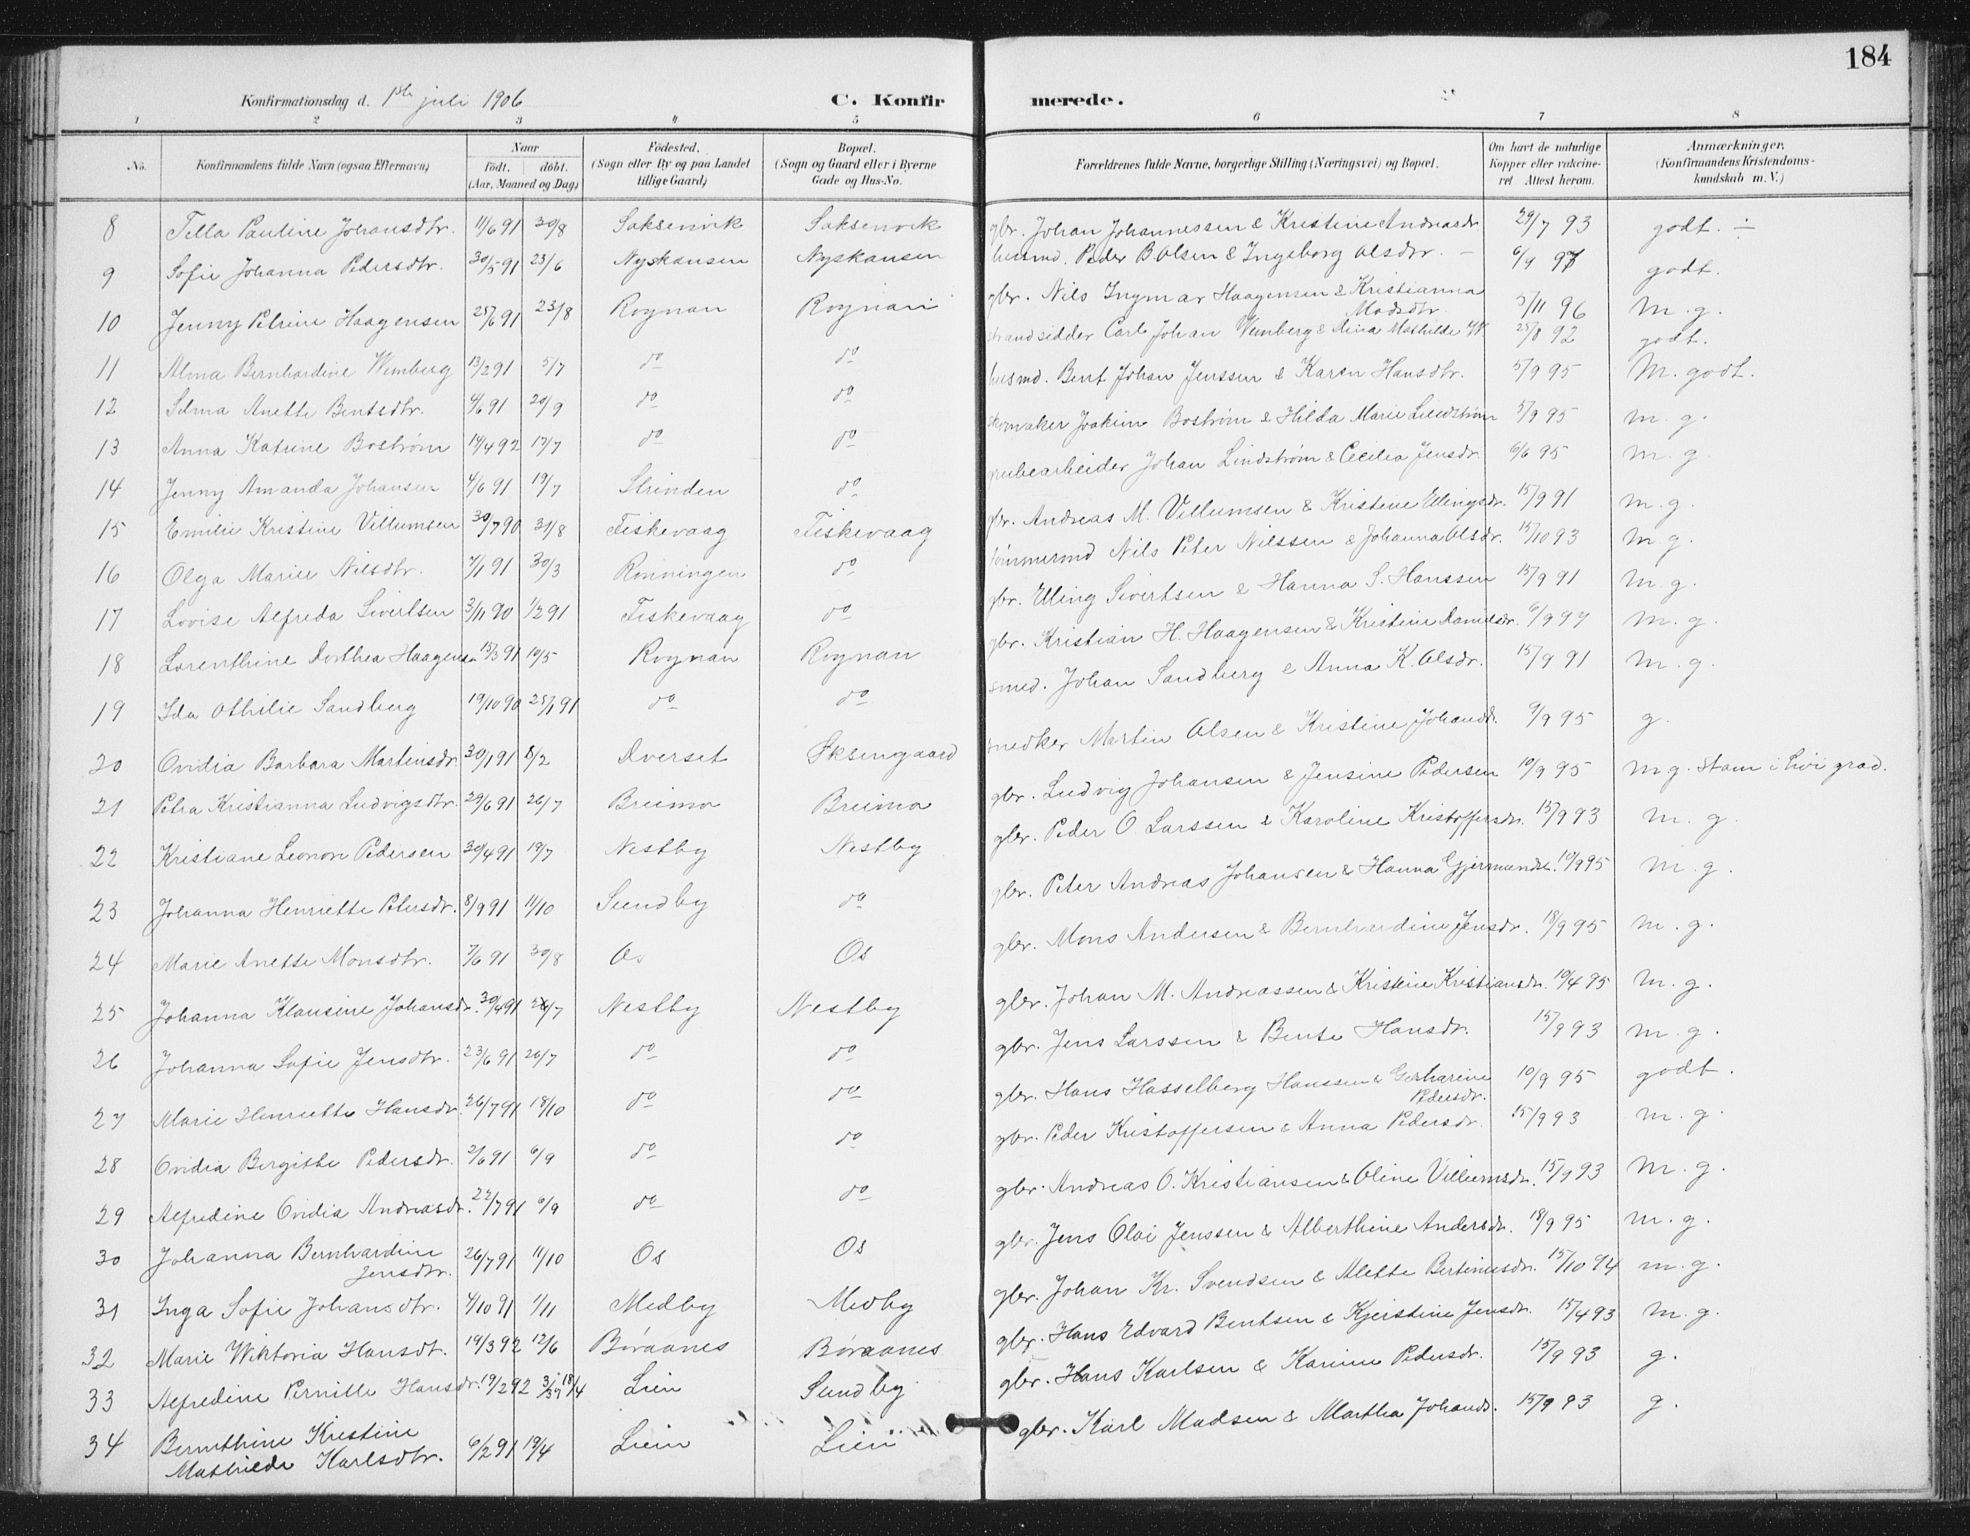 184
Konfirmationsdag d. 1ste juli 1906 C. Konfirmerede.
1 2 3 4 5 6 7 8
No. Konfirmandens fulde Navn (ogsaa Efternavn) Naar født. døbt. (Aar, Maaned og Dag) Födested. (Sogn eller By og paa Landet tillige Gaard) Bopæl. (Sogn og Gaard eller i Byerne Gade og Hus-No. Forældrenes fulde Navne, borgerlige Stilling (Næringsvei) og Bopæl. Om havt de naturlige Kopper eller vakcineret Attest herom. Anmærkninger, (Konfirmandens Kristendomskundskab m. V.)
8 Tilla Pauline Johansdtr. 11/6 91 30/8 Saksenvik Saksenvik gbr. Johan Johannessen & Kristine Andreasdr. 29/7 93 godt. ÷
9 Sofie Johanna Pedersdtr. 30/5 91 23/6 Nyskansen Nyskansen husmd. Peder B. Olsen & Ingeborg Olsdtr. godt.
10 Jenny Petrine Haagensen 25/6 91 23/8 Rognan Rognan gbr. Nils Ingmar Haagensen & Kristianna Madsdtr. 5/11 96 M. g.
11 Alma Bernhardine Wimberg 13/2 91 5/7 do do strandsidder Carl Johan Wimberg & Alina Mathilde W. 25/8 92 godt.
12 Selma Anette Bentsdtr. 4/6 91 20/9 do do husmd. Bent Johan Jenssen & Karen Hansdtr. 5/9 95 M. godt.
13 Anna Katrine Boström 14/4 92 17/7 do do skomaker Joakim Boström & Hilda Marie Lundström 5/9 95 m. g.
14 Jenny Amanda Johansen 4/6 91 19/7 Strinden do grubearbeider Johan Lindström & Cecilia Jensdr. 6/6 95 m. g.
15 Emilie Kristine Villumsen 30/7 90 31/8 Fiskevaag Fiskevaag gbr. Andreas M. Villumsen & Kristine Ellingsdr. 15/9 91 m. g.
16 Olga Marie Nilsdtr. 7/1 91 30/3 Rønningen do tömmermd Nils Peter Nilssen & Johanna Olsdr. 15/10 93 m. g.
17 Lovise Alfreda Sivertsen 3/11 90 1/2 91 Fiskevaag do gbr. Elling Sivertsen & Hanna S. Hanssen 15/9 91 m. g.
18 Lorenthine Dorthea Haagensen 15/3 91 10/5 Rognan Rognan gbr. Kristian H. Haagensen & Kristine Danielsdr. 6/9 97 m. g.
19 Ida Othilie Sandberg 19/10 90 25/1 91 do do smed. Johan Sandberg & Anna K. Olsdr. 15/9 91 m. g.
20 Ovidia Barbara Martinsdr. 30/1 91 8/2 Dverset Øksengaard snedker Martin Olsen & Kristine Johansdr. 9/9 95 g.
21 Petra Kristianna Ludvigsdtr. 29/6 91 26/7 Breimo Breimo gbr. Ludvig Johansen & Jensine Pedersen 10/9 95 m g. Stam i høi grad.
22 Kristiane Leonore Pedersen 30/4 91 19/7 Nestby Nestby gbr. Peder O. Larssen & Karoline Kristoffersdr. 15/9 93 m. g.
23 Johanna Henriette Petersdr. 8/9 91 11/10 Sundby do gbr. Peter Andreas Johansen & Hanna Gjermundsdr. 10/9 95 m. g.
24 Marie Anette Monsdtr. 7/6 91 30/8 Os Os gbr. Mons Andersen & Bernhardine Jensdr. 18/9 95 m. g.
25 Johanna Klausine Johansdr. 30/4 91 26/7 Nestby Nestby gbr. Johan M. Andreassen & Kristine Kristiansdr. 10/4 95 m. g.
26 Johanna Sofie Jensdtr. 23/6 91 26/7 do do gbr. Jens Larssen & Bente Hansdr. 15/9 93 m. g.
27 Marie Henriette Hansdr. 26/7 91 18/10 do do gbr. Hans Hasselberg Hanssen & Pedersdr. 10/9 95 godt.
28 Ovidia Bergithe Pedersdr. 2/6 91 6/9 do do gbr. Peder Kristoffersen & Anna Pedersdr. 15/9 93 m. g.
29 Alfredine Ovidia Andreasdr. 22/7 91 6/9 do do gbr. Andreas O. Kristiansen & Oline Villumsdr. 15/9 93 m. g.
30 Johanna Bernhardine Jensdtr. 26/7 91 11/10 Os Os gbr. Jens Olai Jenssen & Alberthine Andersdr. 18/9 95 m. g.
31 Inga Sofie Johansdtr. 4/10 91 1/11 Medby Medby gbr. Johan Kr. Svendsen & Alette Bertinusdr. 15/10 94 m. g.
32 Marie Wiktoria Hansdt. 19/3 92 12/6 Børaanes Børaanes gbr. Hans Edvard Bentsen & Kjerstine Jensdr. 15/4 93 m. g.
33 Alfredine Pernille Hansdr. 19/2 92 18/4 Lien Sundby gbr. Hans Karlsen & Karine Pedersdr. 15/9 93 g.
34 Bernthine Kristine Mathilde Karlsdtr. 6/2 91 19/4 Lien Lien gbr. Karl Madsen & Martha Johansdr. 15/9 93 g.